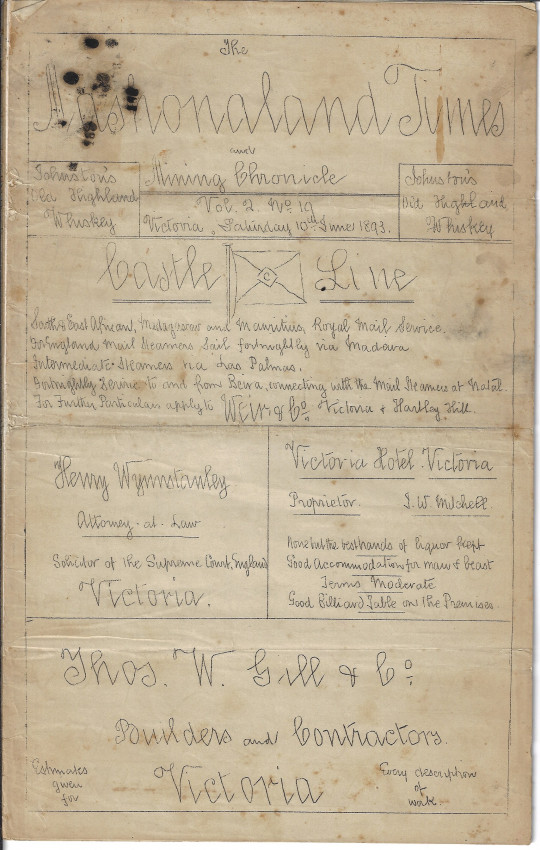 The
Mashonaland Times
and
Mining Chronicle
Johnston's
Old Highland
Whiskey
Vol. 2. No 19
Victoria, Saturday 10th June 1893.
Johnston's
Old Highland
Whiskey
Castle C Line
South & East African, Madagascar and Mauritius, Royal Mail Service.
For England Mail Steamers Sail fortnightly via Madeva
Intermediate Steamers via Las Palmas.
Fortnightly Service to and from Beira, connecting with the Mail Steamers at Natal.
For Further Particulars apply to Weir & Co Victoria & Hartley Hill.
Henry Wynnstanley
Attorney-at-Law
Solicitor of the Supreme Court, England
Victoria.
Victoria Hotel Victoria
Proprietor. J. W. Mitchell
None but the best brands of liquor kept
Good Accommodation for man & beast
Terms Moderate
Good Billiard Table on the Premises.
Thos. W. Gill & Co.
Builders and Contractors.
Victoria
Estimates
given
for
Every description
of
work.